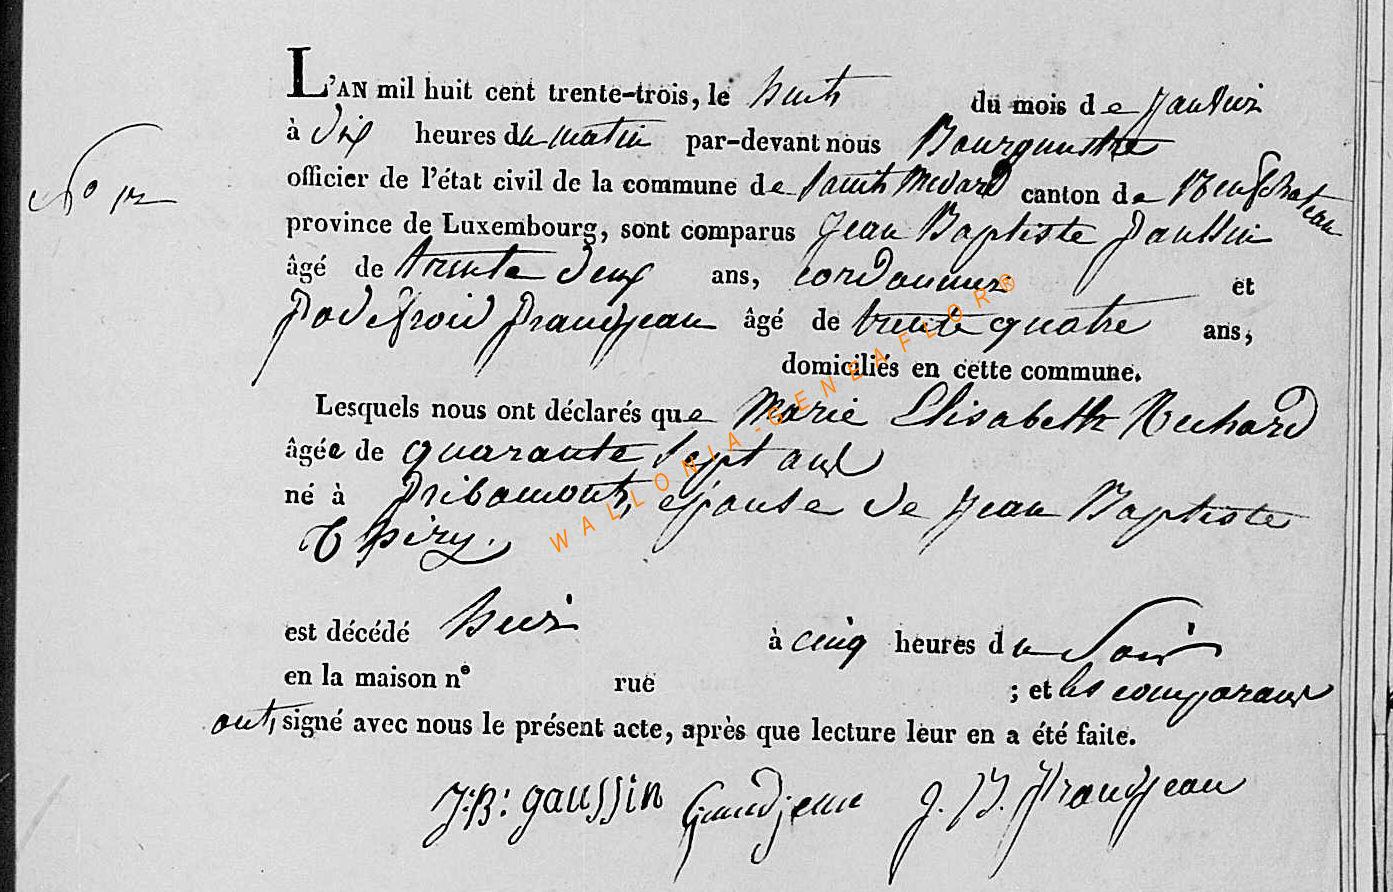 L'AN mil huit cent trente-trois, le huit du mois de Janvier
à dix heures du matin par-devant nous Bourgmestre
officier de l'état civil de la commune de Saint Medard canton de Neufchateau
N° 12
province de Luxembourg, sont comparus Jean Baptiste Gaussin
âgé de trente deux ans, cordonnier et
Godefroid Grandjean âgé de trente quatre ans,
domiciliés en cette commune.
Lesquels nous ont déclarés que Marie Elisabeth Richard
âgée de quarante sept ans
né à Gribomont, epouse de Jean Baptiste
Thiry.
est décédé hier à cinq heures du soir
en la maison n° rue ; et les comparans
ont, signé avec nous le présent acte, après que lecture leur en a été faite.
J: B: gaussin Grandjean J. B. Grandjean
WALLONIA-GENEAFLOR®